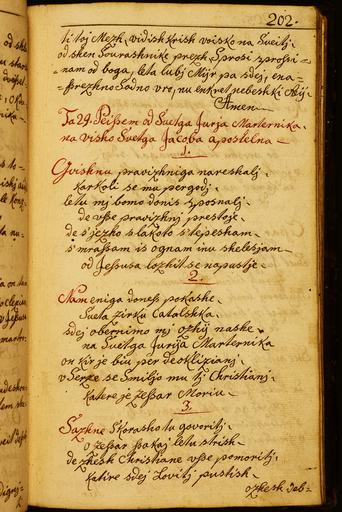 202.
ti toj Mezh, vidish krish voisko na Sveitj.
od shen Sourashnike prezh, Sprosi sprossi=
=nam od boga, leta lubj Mÿr pa sdej, ena=
=sprezhno Sodno vro, nu enkret nebeshki
Amen.
Ta 29. Peissem od Svetga Jurja Marternika.
na visho Svetga Jacoba apostelna
1.
Gvishnu pravizhniga nareshalj.
karkoli se mu pergodj.
letu mj bomo donis sposnalj
de vsse pravizhnj prestoje.
de s'jezho slakoto s'tepesham.
s'mrassam is ognam inu shelesjam
od Jessusa lozhit se napustje.
2.
Nam eniga doness pokashe.
Sveta zirku Catolshka.
sdej obernimo mj ozhÿ nashe
na Svetga Jurja Marternika
on kir je biu per deoklizianj
v Serze se Smiljo mu tj Christianj.
katere je zessar Moriu.
3.
Sazhne Skorashotu govoritj.
o zessar
de zhesh Christiane vsse pomoritj.
katire sdej Lovitj pustish.